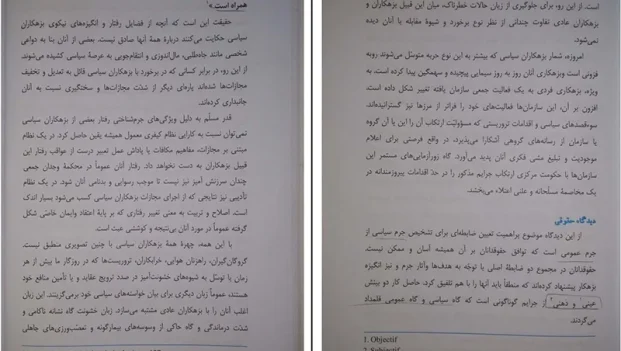 همراه است.»
حقیقت این است که آنچه از فضایل رفتار و انگیزه‌های نیکوی بزهکاران
سیاسی حکایت می‌کنند دربارهٔ همهٔ آنها صادق نیست. بعضی از آنان بنا به دواعی
شخصی مانند جاه‌طلبی، مال‌اندوزی و انتقام‌جویی به عرصهٔ سیاسی کشیده می‌شوند.
از این رو، در برابر کسانی که در برخورد با بزهکاران سیاسی قائل به تعدیل و تخفیف
مجازات‌ها شده‌اند پاره‌ای دیگر از شدت مجازات‌ها و سختگیری نسبت به آنان
جانبداری کرده‌اند.
قدر مسلّم به دلیل ویژگی‌های جرم‌شناختی رفتار بعضی از بزهکاران سیاسی
نمی‌توان نسبت به کارایی نظام کیفری معمول همیشه یقین حاصل کرد. در یک نظام
مبتنی بر مجازات، مفاهیم مکافات یا پاداش عمل تعبیر درست از عواقب رفتار این
قبیل بزهکاران به دست نخواهد داد. رفتار آنان عموماً در محکمهٔ وجدان جمعی
چندان سرزنش آمیز نیز نیست تا موجب رسوایی و بدنامی آنان شود. در یک نظام
تأدیبی نیز نتایجی که از اجرای مجازات بزهکاران سیاسی کسب می‌شود بسیار اندک
است. اصلاح و تربیت به معنی تغییر رفتاری که بر پایهٔ اعتقاد وایمان خاصّی شکل
گرفته عموماً در مورد آنان بی‌نتیجه و کوششی عبث است.
با این همه، چهرهٔ همهٔ بزهکاران سیاسی با چنین تصویری منطبق نیست.
گروگان‌گیران، راهزنان هوایی، خرابکاران، تروریست‌ها که در روزگار ما بیش از هر
زمان با توسّل به شیوه‌های خشونت‌آمیز در صدد ترویج عقاید و یا تأمین منافع خود
هستند، عموماً زبان دیگری برای بیان خواسته‌های سیاسی خود برمی‌گزینند. این زبان
اغلب آنان را با بزهکاران عادی مشتبه می‌سازد. زبان خشونت گاه نشانه ناکامی و
شدّت درماندگی و گاه حاکی از وسوسه‌های بیمارگونه و تعصّب‌ورزی‌های جاهلی
است. از این رو، برای جلوگیری از زیان حالات خطرناک، میان این قبیل بزهکاران و
بزهکاران عادی تفاوت چندانی از نظر نوع برخورد و شیوهٔ مقابله با آنان دیده
نمی‌شود.
امروزه، شمار بزهکاران سیاسی که بیشتر به این نوع حربه متوسّل می‌شوند روبه
فزونی است وبزهکاری آنان روز به روز سیمایی پیچیده و سهمگین پیدا کرده است، به
ویژه، بزهکاری فردی به یک فعالیت جمعی سازمان یافته تغییر شکل داده است.
افزون بر آن، این سازمان‌ها فعالیت‌های خود را فراتر از مرزها نیز گسترانیده‌اند.
سوءقصدهای سیاسی و اقدامات تروریستی که مسؤولیّت ارتکاب آن را این یا آن گروه
یا سازمان از رسانه‌های گروهی آشکارا می‌پذیرد، در واقع فرصتی برای اعلام
موجودیت و تبلیغ مشی فکری آنان پدید می‌آورد. گاه زورآزمایی‌های مستمر این
سازمان‌ها با حکومت مرکزی ارتکاب جرایم مذکور را در حدّ اقدامات پیروزمندانه در
یک مخاصمهٔ مسلّحانه و علنی اعتلاء می‌بخشد.
دیدگاه حقوقی
از این دیدگاه موضوع پراهمیت تعیین ضابطه‌ای برای تشخیص جرم سیاسی از
جرم عمومی است که توافق حقوقدانان بر آن همیشه آسان و ممکن نیست.
حقوقدانان در مجموع دو ضابطهٔ اصلی با توجّه به هدف‌ها وآثار جرم و نیز انگیزه
بزهکار پیشنهاد کرده‌اند که منطقاً باید آنها را با هم تلفیق کرد. حاصل کار دو بینش
عینی¹ و ذهنی² از جرایم گوناگونی است که گاه سیاسی و گاه عمومی قلمداد
می‌گردند.
1. Objectif
2. Subjectif